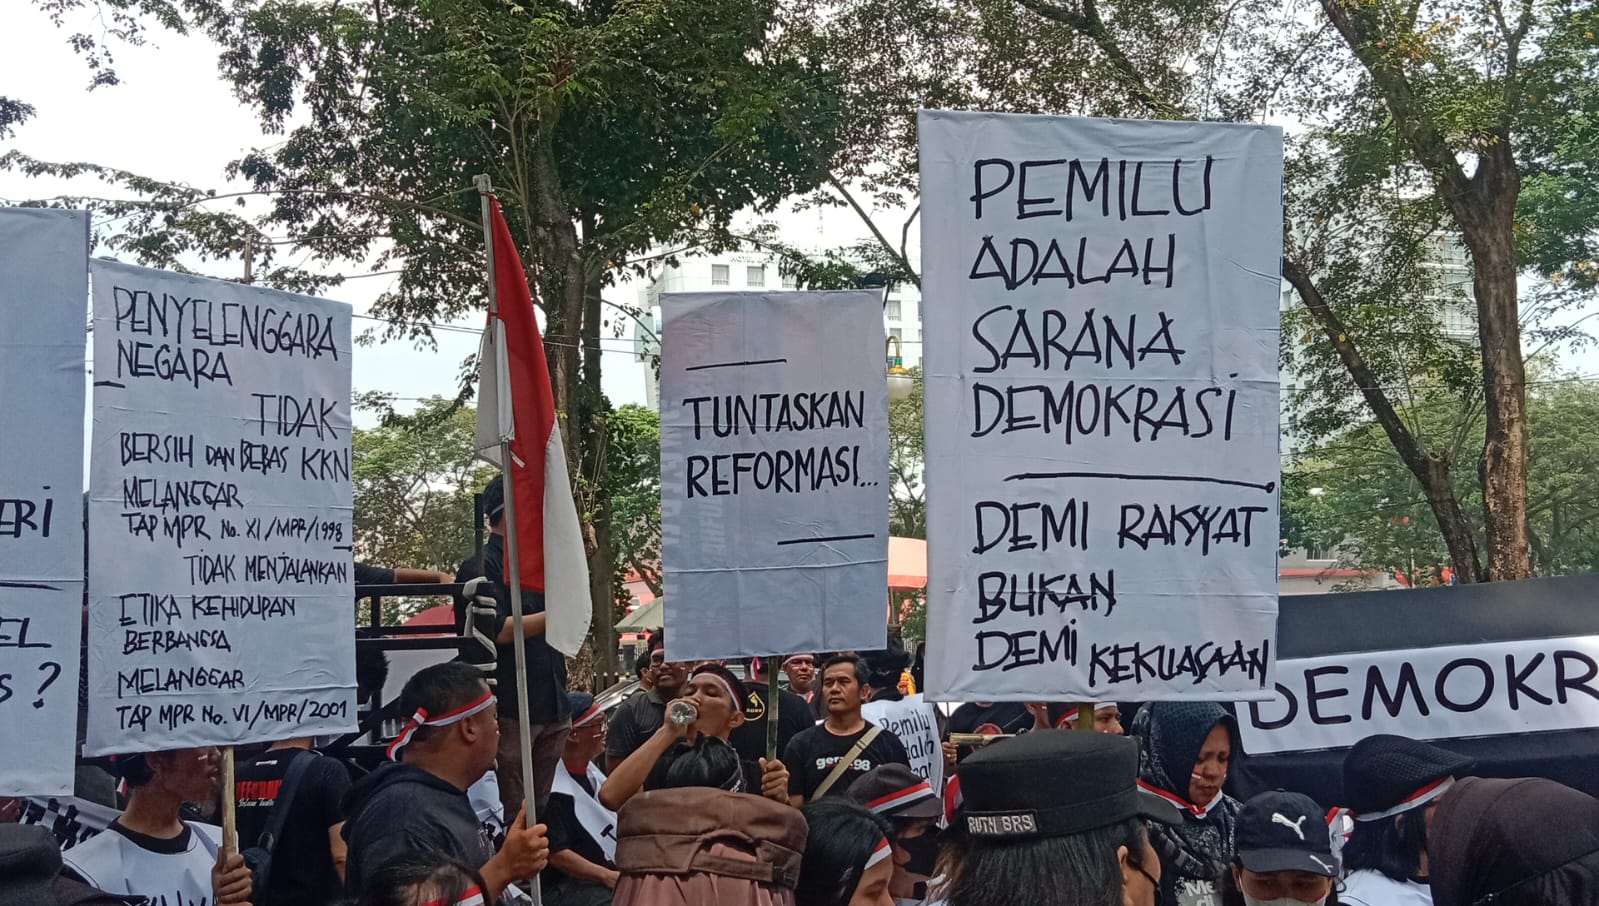 ERI
EL
s?
PENYELENGGARA
NEGARA
TIDAK
BERSIH DAN BEBAS KKN
MELANGGAR
TAP MPR No. XI/MPR/1998
TIDAK MENJALANKAN
ETIKA KEHIDUPAN
BERBANGSA
MELANGGAR
TAP MPR No. VI/MPR/2001
TUNTASKAN
REFORMASI...
PEMILU
ADALAH
SARANA
DEMOKRASI
DEMI RAKYAT
BUKAN
DEMI KEKUASAAN
DEMOKR
Pemilu
RUTH BRS